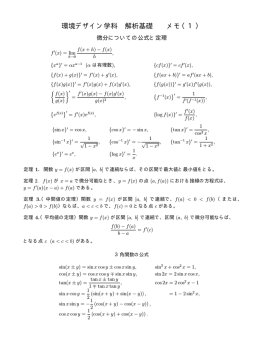 環境デザイン学科　解析基礎　メモ（１）
微分についての公式と定理
f'(x) = lim_{h→0} (f(x + h) − f(x))/h.
(x^α)' = αx^{α−1} (α は有理数), (cf(x))' = cf'(x),
(f(x) + g(x))' = f'(x) + g'(x), (f(ax + b))' = af'(ax + b),
(f(x)g(x))' = f'(x)g(x) + f(x)g'(x), (f(g(x)))' = f'(g(x))g'(x),
{f(x)/g(x)}' = (f'(x)g(x) − f(x)g'(x))/g(x)^2, {f^{−1}(x)}' = 1/f'(f^{−1}(x)),
{e^{f(x)}}' = f'(x)e^{f(x)}, {log f(x)}' = f'(x)/f(x).
{sin x}' = cos x, {cos x}' = − sin x, {tan x}' = 1/cos^2 x,
{sin^{−1} x}' = 1/√(1 − x^2), {cos^{−1} x}' = −1/√(1 − x^2), {tan^{−1} x}' = 1/(1 + x^2),
{e^x}' = e^x, {log x}' = 1/x.
定理 1. 関数 y = f(x) が区間 [a, b] で連続ならば、その区間で最大値と最小値をとる。
定理 2. f(x) が x = a で微分可能なとき、y = f(x) の点 (a, f(a)) における接線の方程式は、
y = f'(a)(x − a) + f(a) である。
定理 3.（中間値の定理）関数 y = f(x) が区間 [a, b] で連続で、f(a) < 0 < f(b)（または、
f(a) > 0 > f(b)）ならば、a < c < b で、f(c) = 0 となる点 c がある。
定理 4.（平均値の定理）関数 y = f(x) が区間 [a, b] で連続で、区間 (a, b) で微分可能ならば、
(f(b) − f(a))/(b − a) = f'(c)
となる点 c (a < c < b) がある。
3 角関数の公式
sin(x ± y) = sin x cos y ± cos x sin y, sin^2 x + cos^2 x = 1,
cos(x ± y) = cos x cos y ∓ sin x sin y, sin 2x = 2 sin x cos x,
tan(x ± y) = (tan x ± tan y)/(1 ∓ tan x tan y), cos 2x = 2 cos^2 x − 1
sin x cos y = 1/2 (sin(x + y) + sin(x − y)), = 1 − 2 sin^2 x.
cos x cos y = 1/2 (cos(x + y) + cos(x − y)),
sin x sin y = −1/2 (cos(x + y) − cos(x − y)).